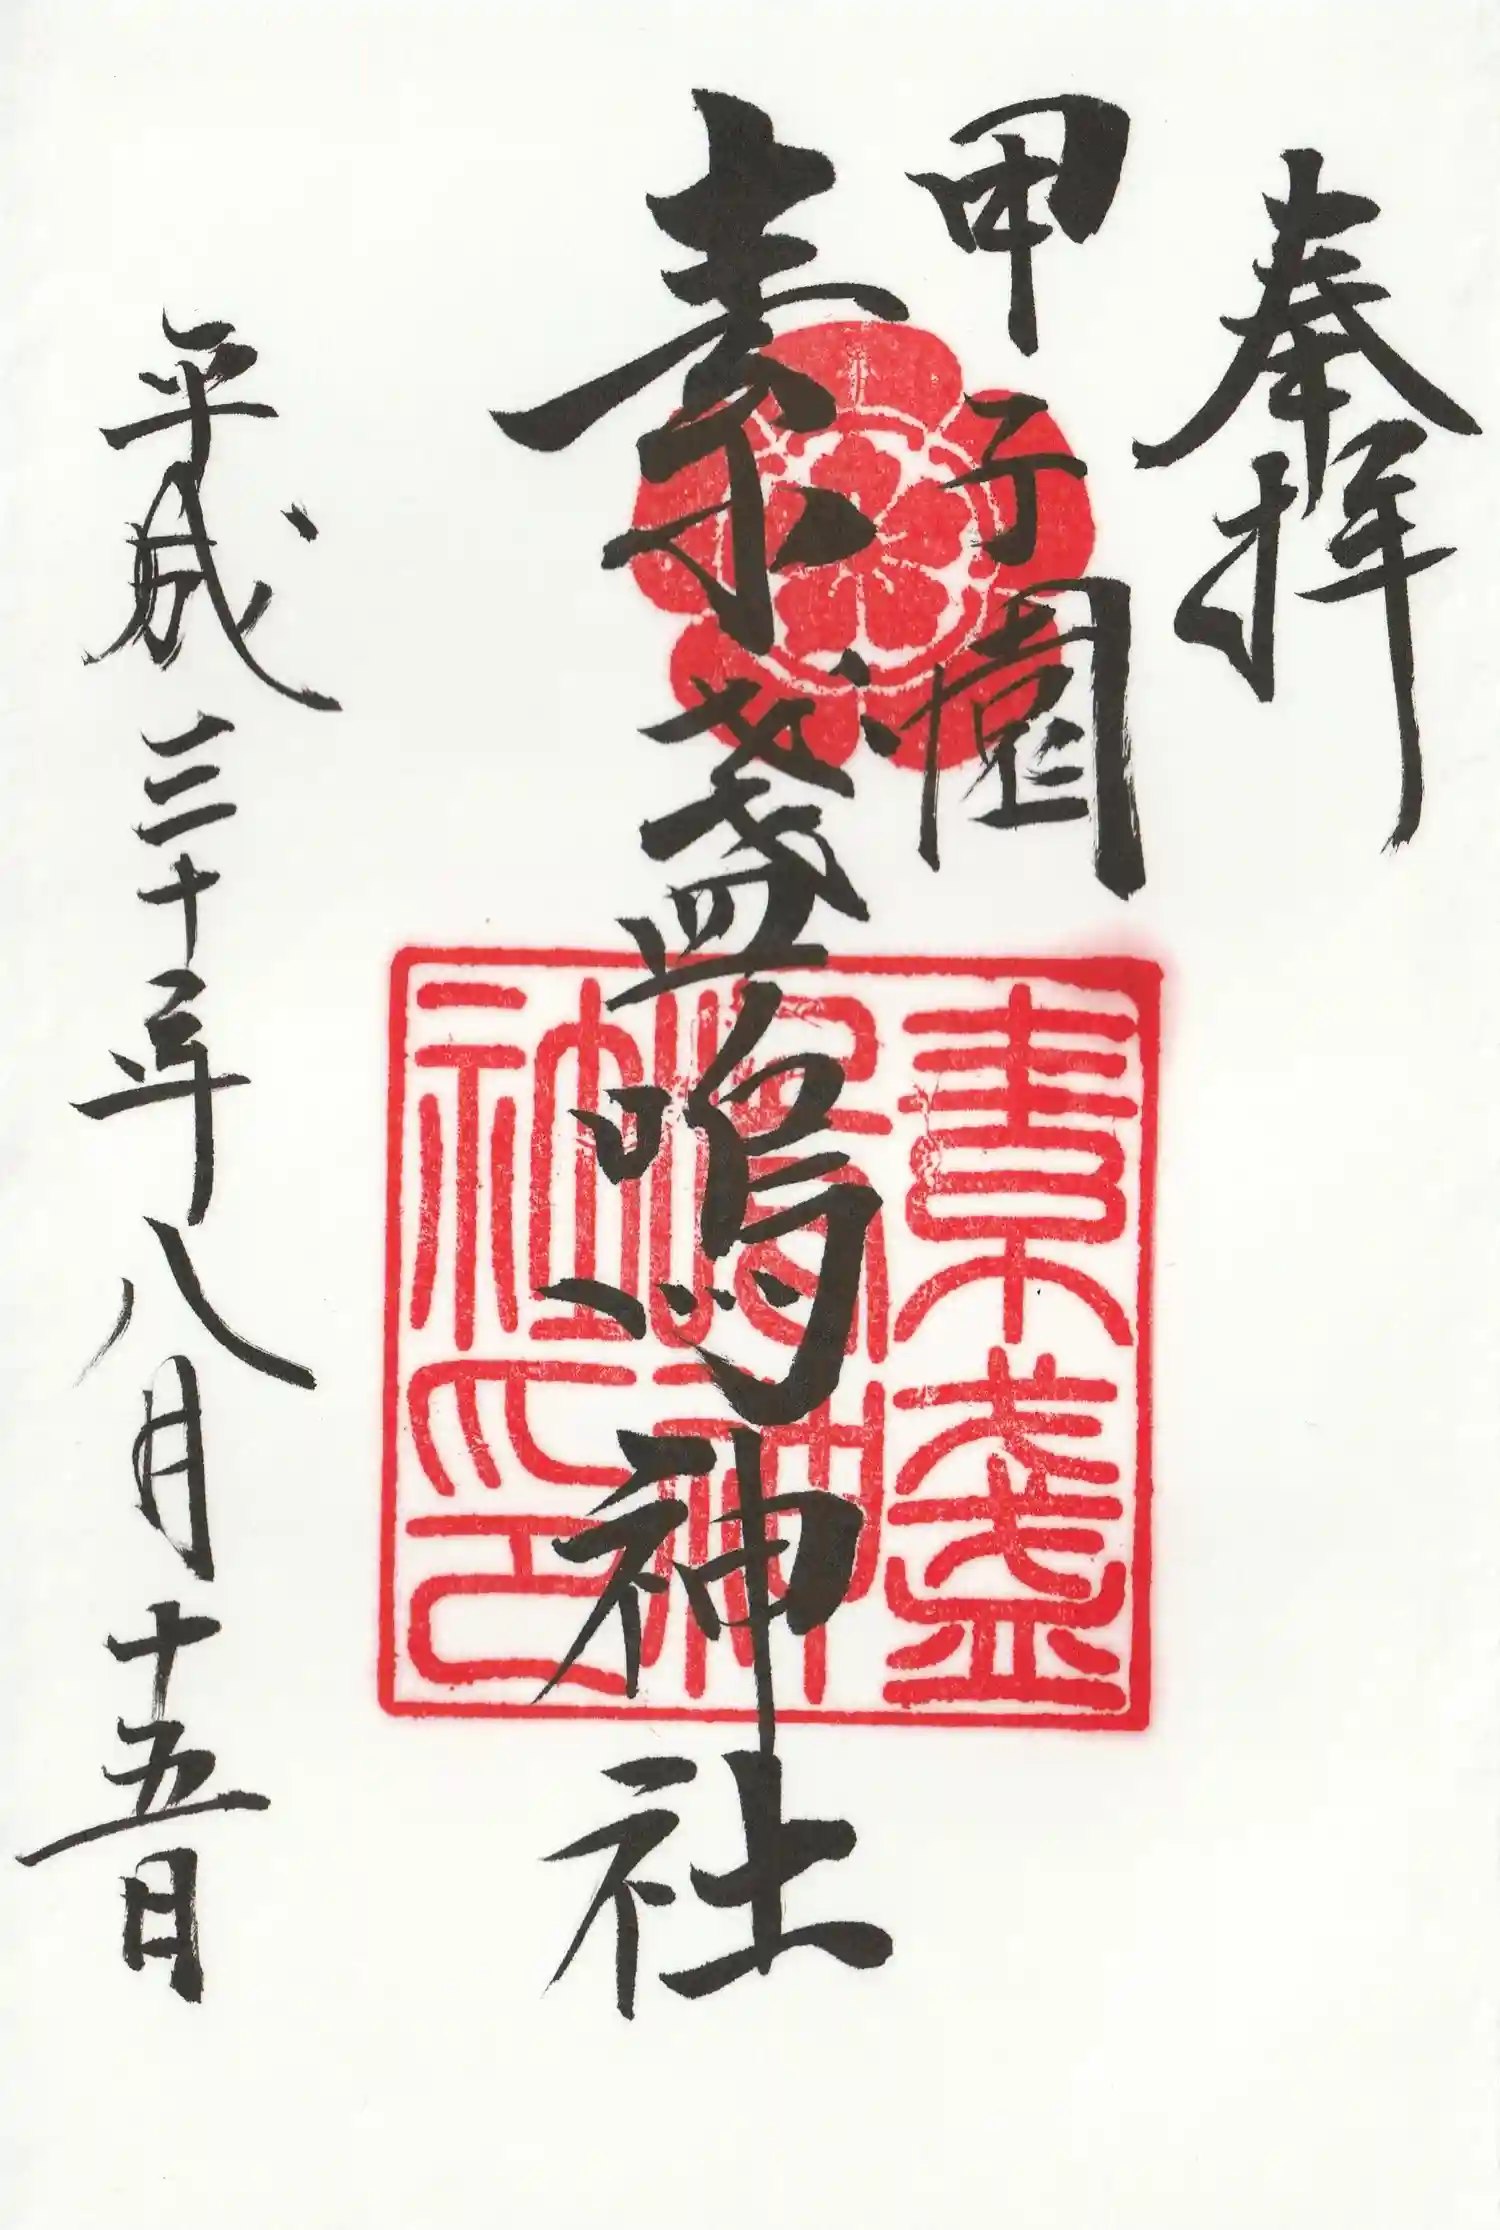 奉拝
甲子園
素盞嗚神社
平成三十年八月十五日
素盞
神
社印